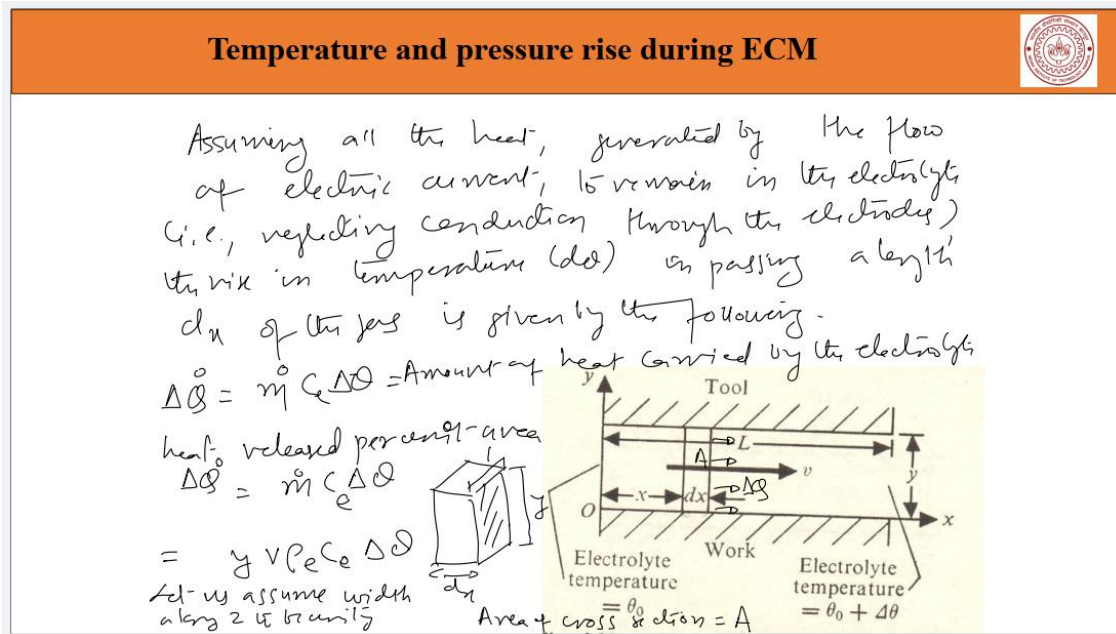 Temperature and pressure rise during ECM
Assuming all the heat, generated by the flow
of electric current, to remain in the electrolyte
(i.e., neglecting conduction through the electrodes)
the rise in temperature (dθ) in passing a length
dx of the is given by the following.
ΔQ̊ = m̊ Ce Δθ = Amount of heat carried by the electrolyte
heat released per unit area
ΔQ̊ = m̊ Ce Δθ
= y v ρe Ce Δθ
Let us assume width
along z is be unity
1
y
dx
y
Tool
L
A
v
x
dx
ΔQ
y
O
x
Work
Electrolyte
temperature
= θ0
Electrolyte
temperature
= θ0 + Δθ
Area of cross section = A